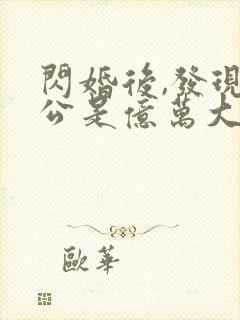 閃婚後,發現
公是億萬大
歐華